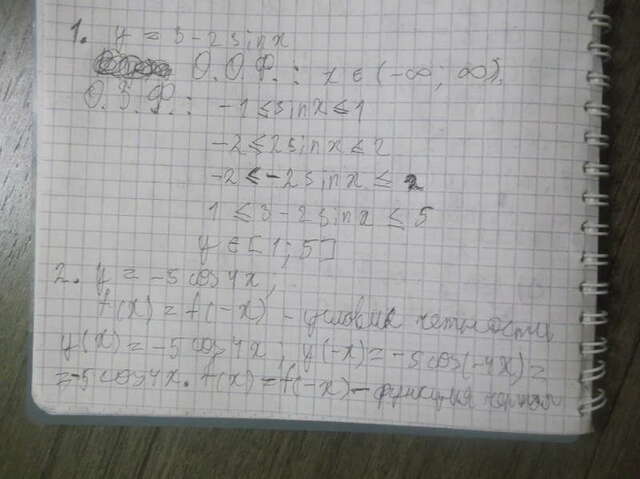 1. y = 3 - 2 sinx
О.О.Ф.: x ∈ (-∞; ∞).
О.З.Ф.: -1 ≤ sinx ≤ 1
-2 ≤ 2sinx ≤ 2
-2 ≤ -2sinx ≤ 2
1 ≤ 3 - 2sinx ≤ 5
y ∈ [1; 5]
2. y = -5 cos4x;
f(x) = f(-x) - условие четности
y(x) = -5 cos4x; y(-x) = -5cos(-4x) =
= -5cos4x. f(x) = f(-x) - функция четная